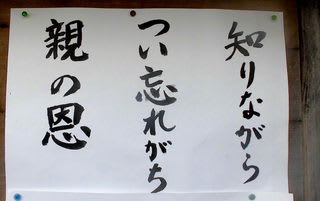 知りながら
つい忘れがち
親の恩